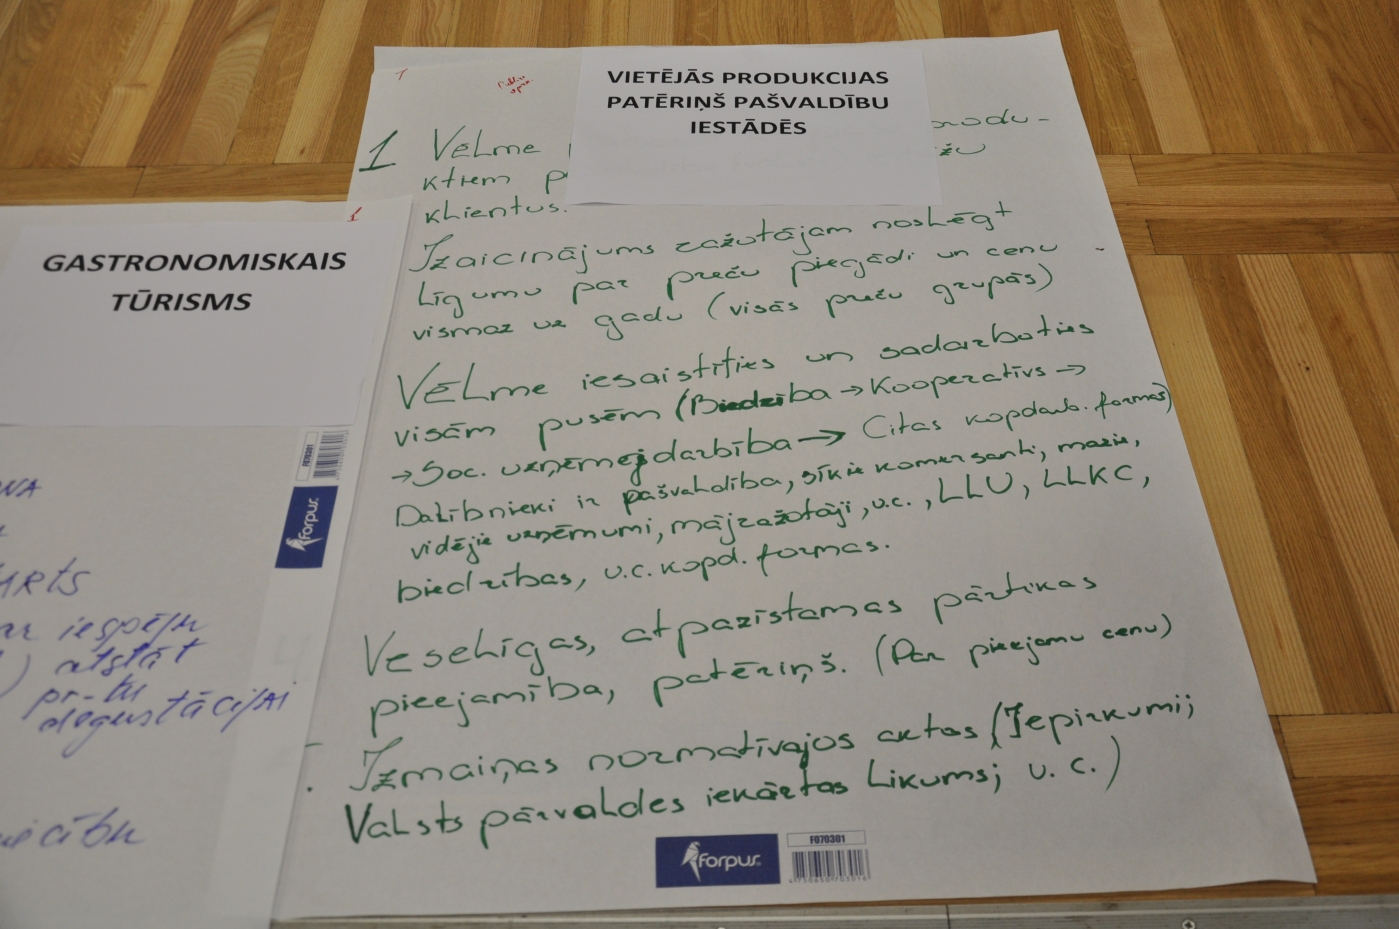 VIETĒJĀS PRODUKCIJAS
PATĒRIŅŠ PAŠVALDĪBU
IESTĀDĒS
1 Vēlme produ-
ktiem
klientus.
Izaicinājums ražotājam noslēgt
līgumu par preču piegādi un cenu
vismaz uz gadu (visās preču grupās)
Vēlme iesaistīties un sadarboties
visām pusēm (Biedrība → Kooperatīvs →
→ Soc. uzņēmejdarbība → Citas kopdarb. formas)
Dalībnieki ir pašvaldība, sīkie komersanti, mazie,
vidējie uzņēmumi, mājražotāji, u.c., LLU, LLKC,
biedrības, u.c. kopd. formas.
Veselīgas, atpazīstamas pārtikas
pieejamība, patēriņš. (Par pieejamu cenu)
Izmaiņas normatīvajos aktos (Iepirkumi;
Valsts pārvaldes iekārtas likums; u.c.)
forpus
F070301
4750650703016
1
GASTRONOMISKAIS
TŪRISMS
F070301
forpus
ar iespēju
) atstāt
pr-tu
degustācijai